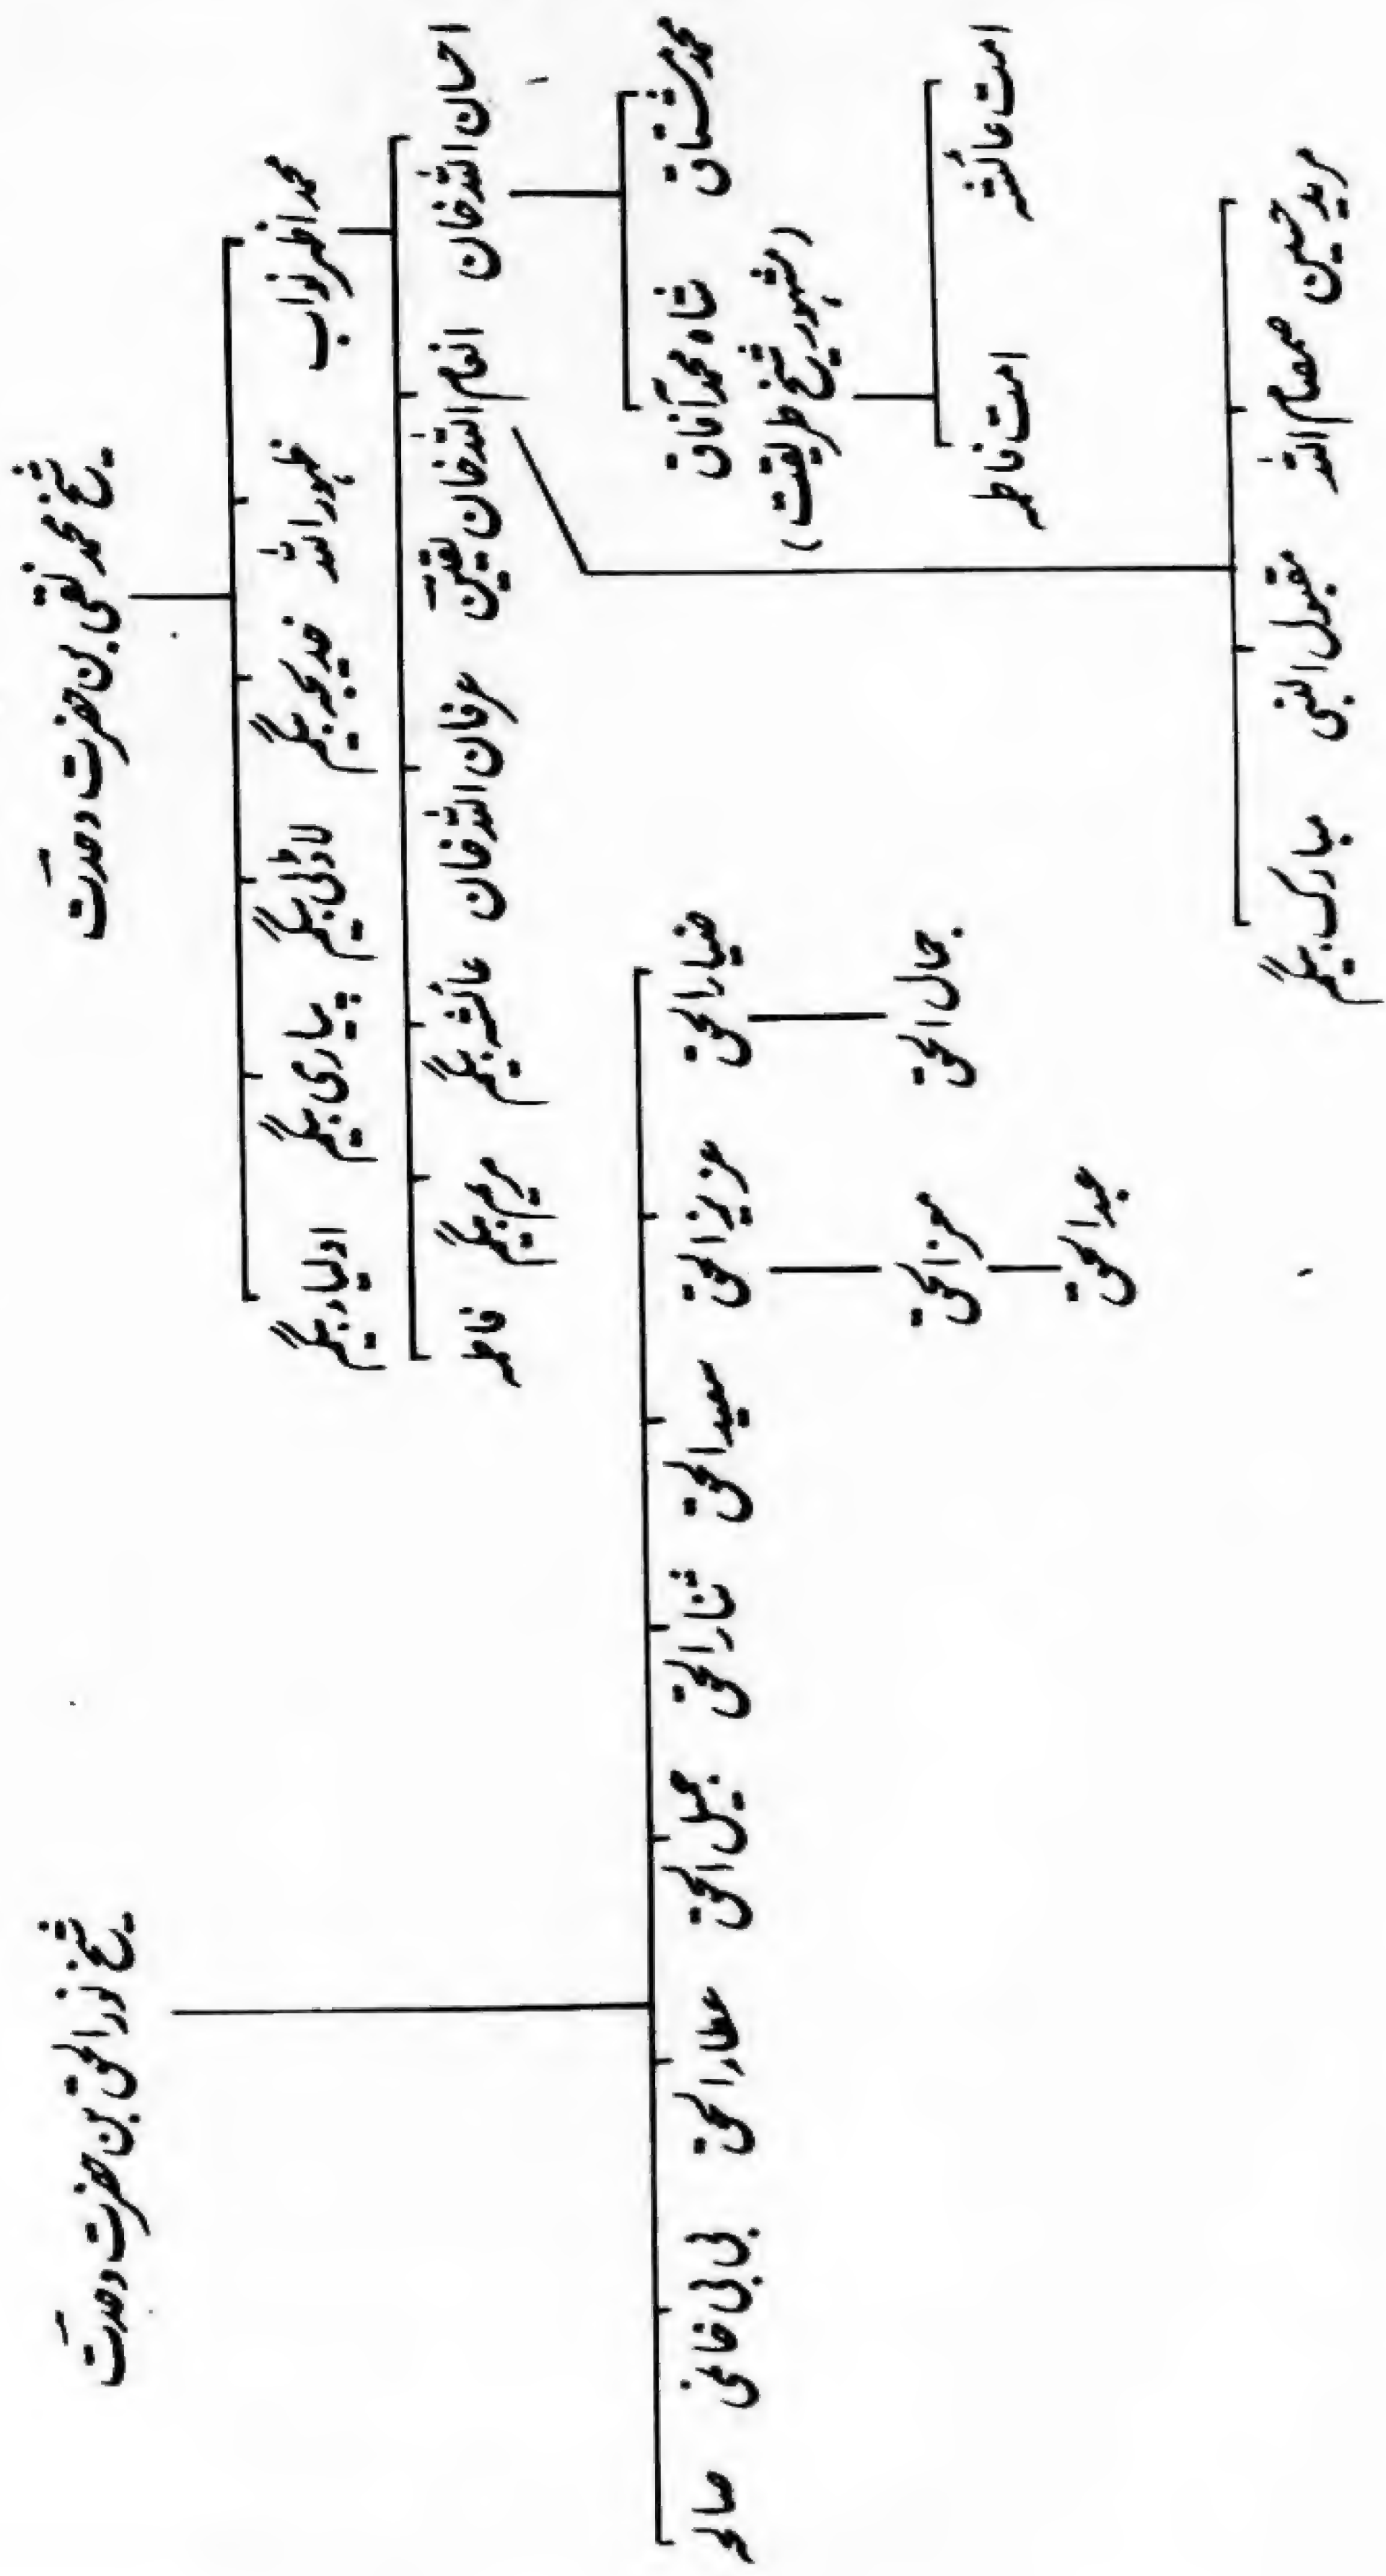 شیخ محمد نقی بن حضرت وحدتؔ
محمد اظہر نواب
ظہور اللہ
خدیجہ بیگم
لاڈلی بیگم
پیاری بیگم
اولیاء بیگم
احسان اللہ خان
انعام اللہ خان یقینؔ
عرفان اللہ خان
عائشہ بیگم
مریم بیگم
فاطمہ
محمد مشتاق
شاہ محمد آفاق
(مشہور شیخ طریقت)
امت عائشہ
امت فاطمہ
مرید حسین
صمصام اللہ
مقبول النبی
مبارک بیگم
شیخ نور الحق بن حضرت وحدتؔ
ضیاء الحق
عزیز الحق
سعید الحق
ثناء الحق
جمیل الحق
عطاء الحق
بی بی
صالحہ
جمال الحق
معز الحق
عبد الحق